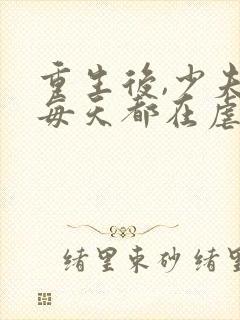 重生後,少夫
每天都在虐
绪里束砂 绪里